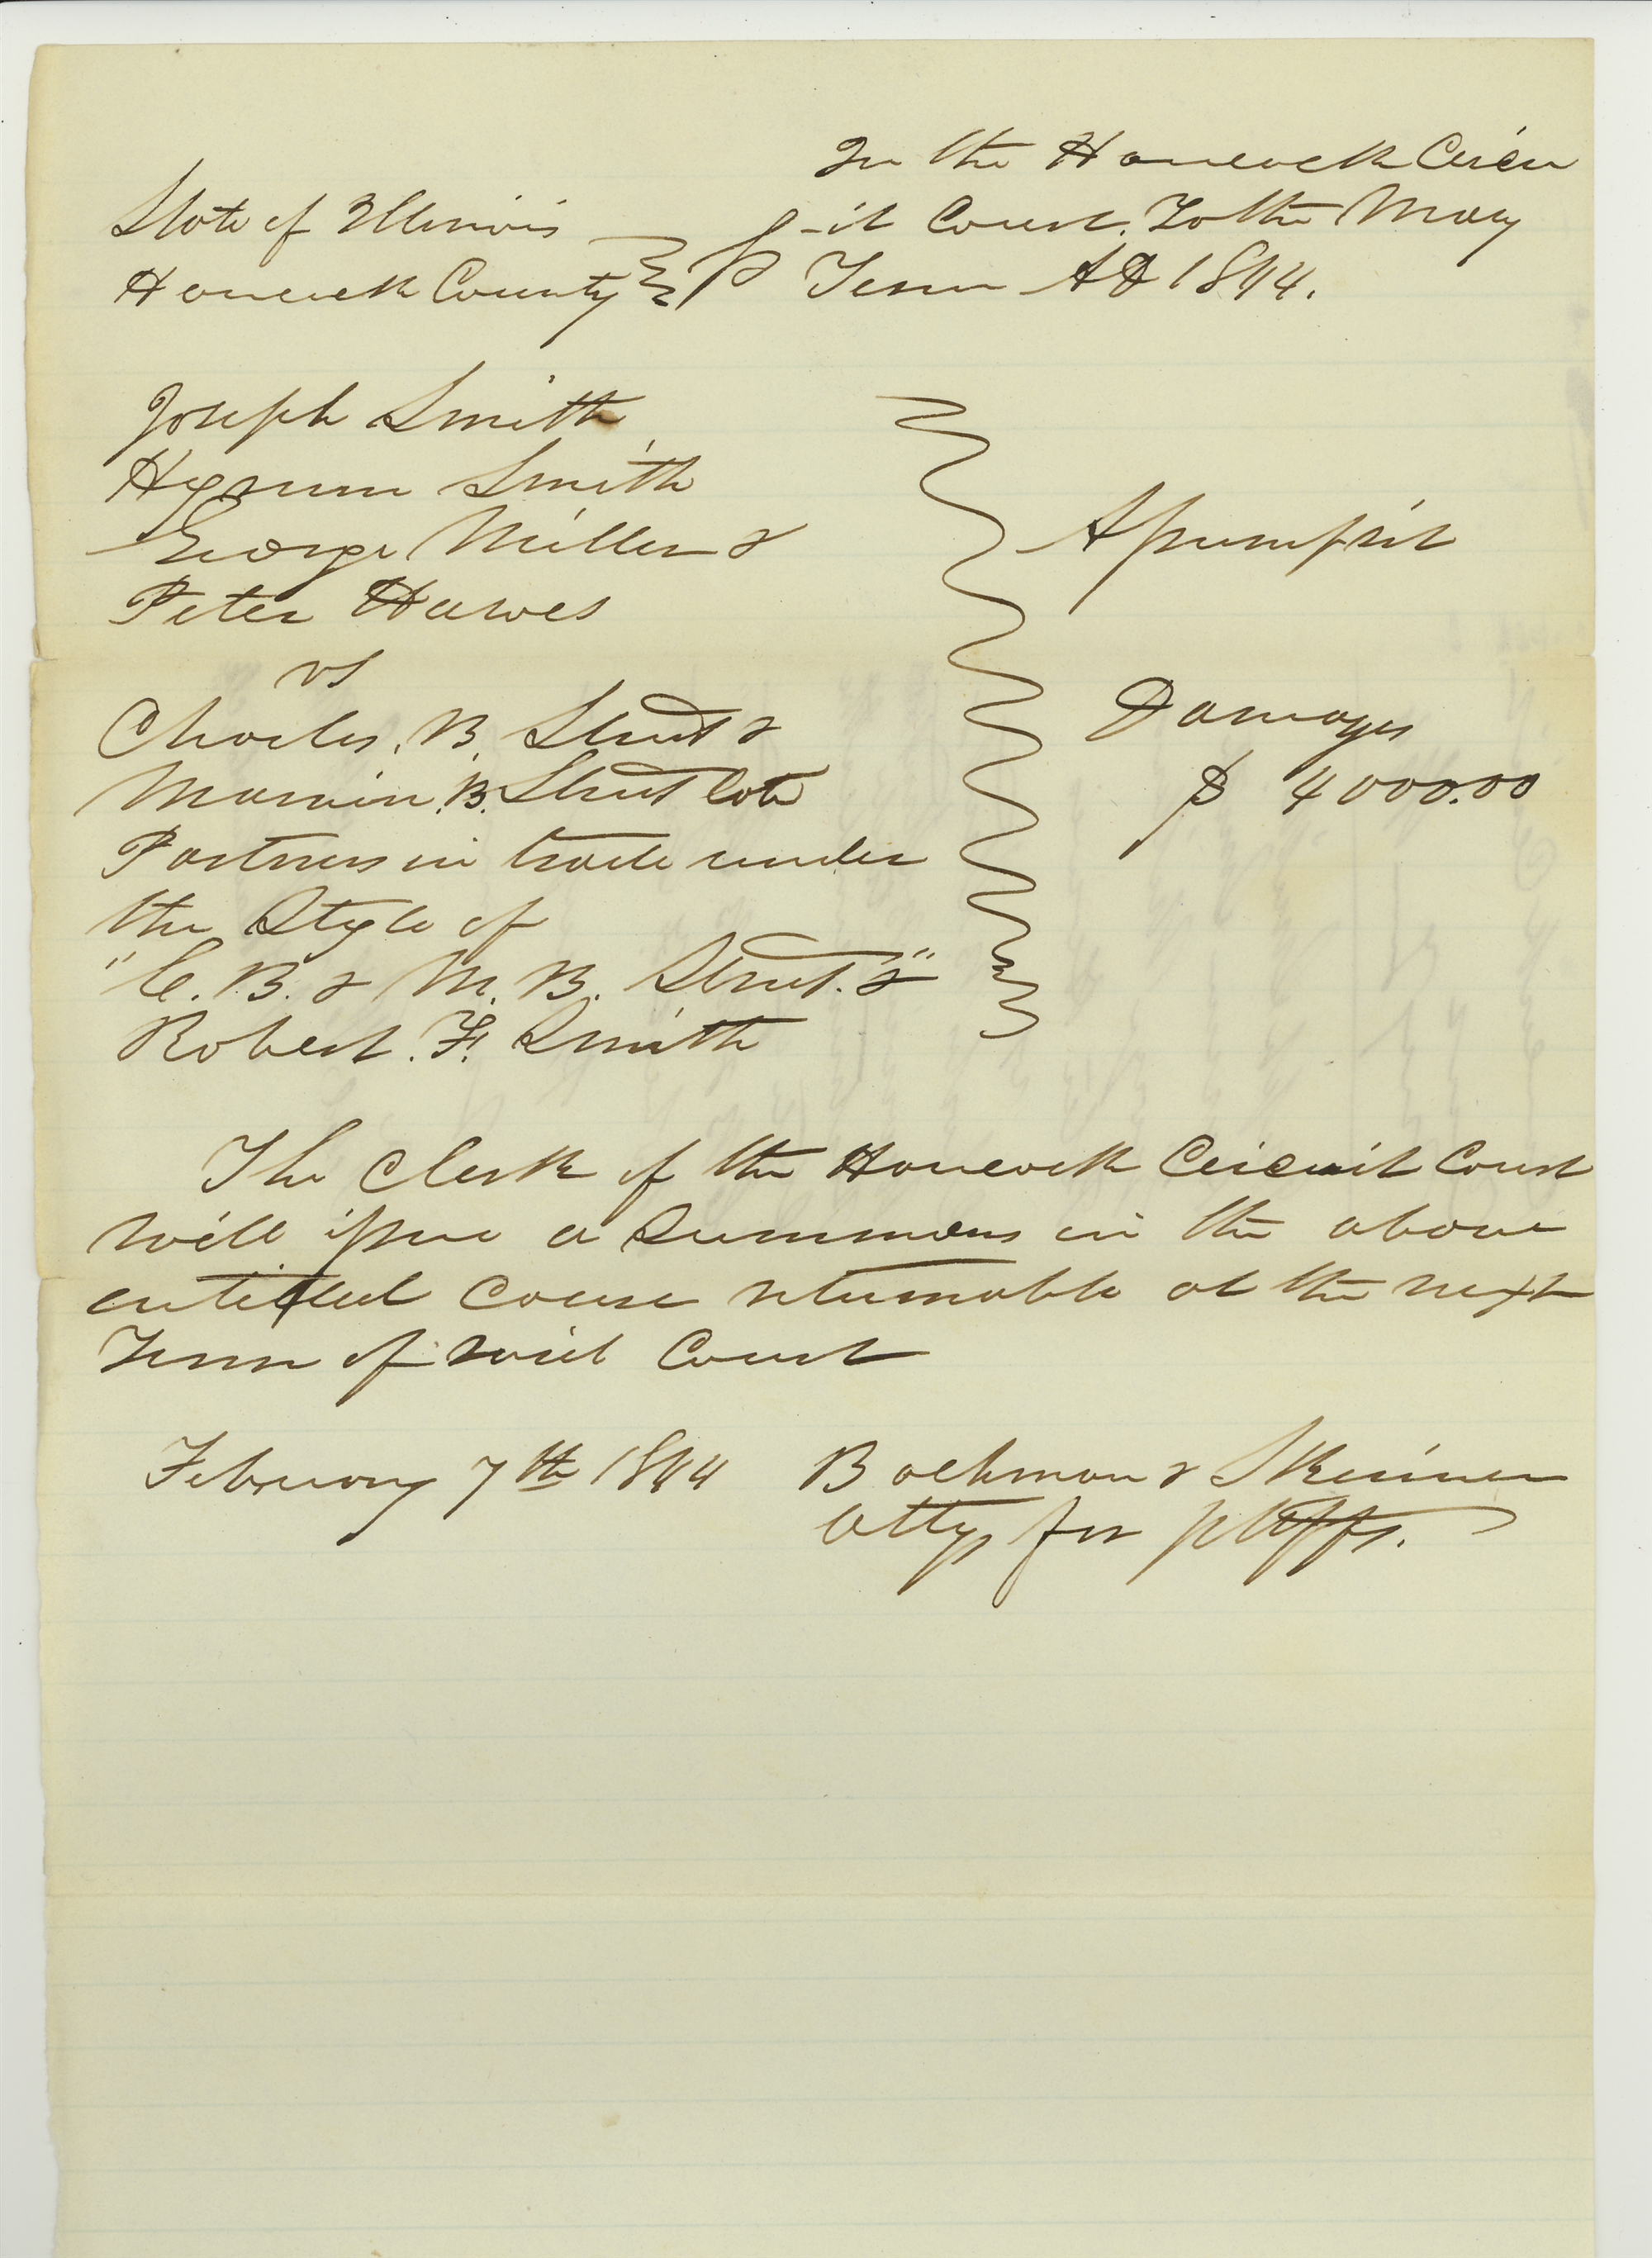 In the Hancock Circu
State of Illinois } ss -it Court. To the May
Hancock County } Term AD 1844.
Joseph Smith
Hyrum Smith
George Miller &
Peter Hawes
Assumpsit
vs
Charles. B. Street &
Damages
Marvin. B. Street late
$ 4000.00
Partners in trade under
the Style of
"C. B. & M. B. Street." &
Robert. F. Smith
The Clerk of the Hancock Circuit Court
will issue a Summons in the above
entitled cause returnable at the next
Term of said Court
February 7th 1844 Bachman & Skinner
Attys for pltffs.